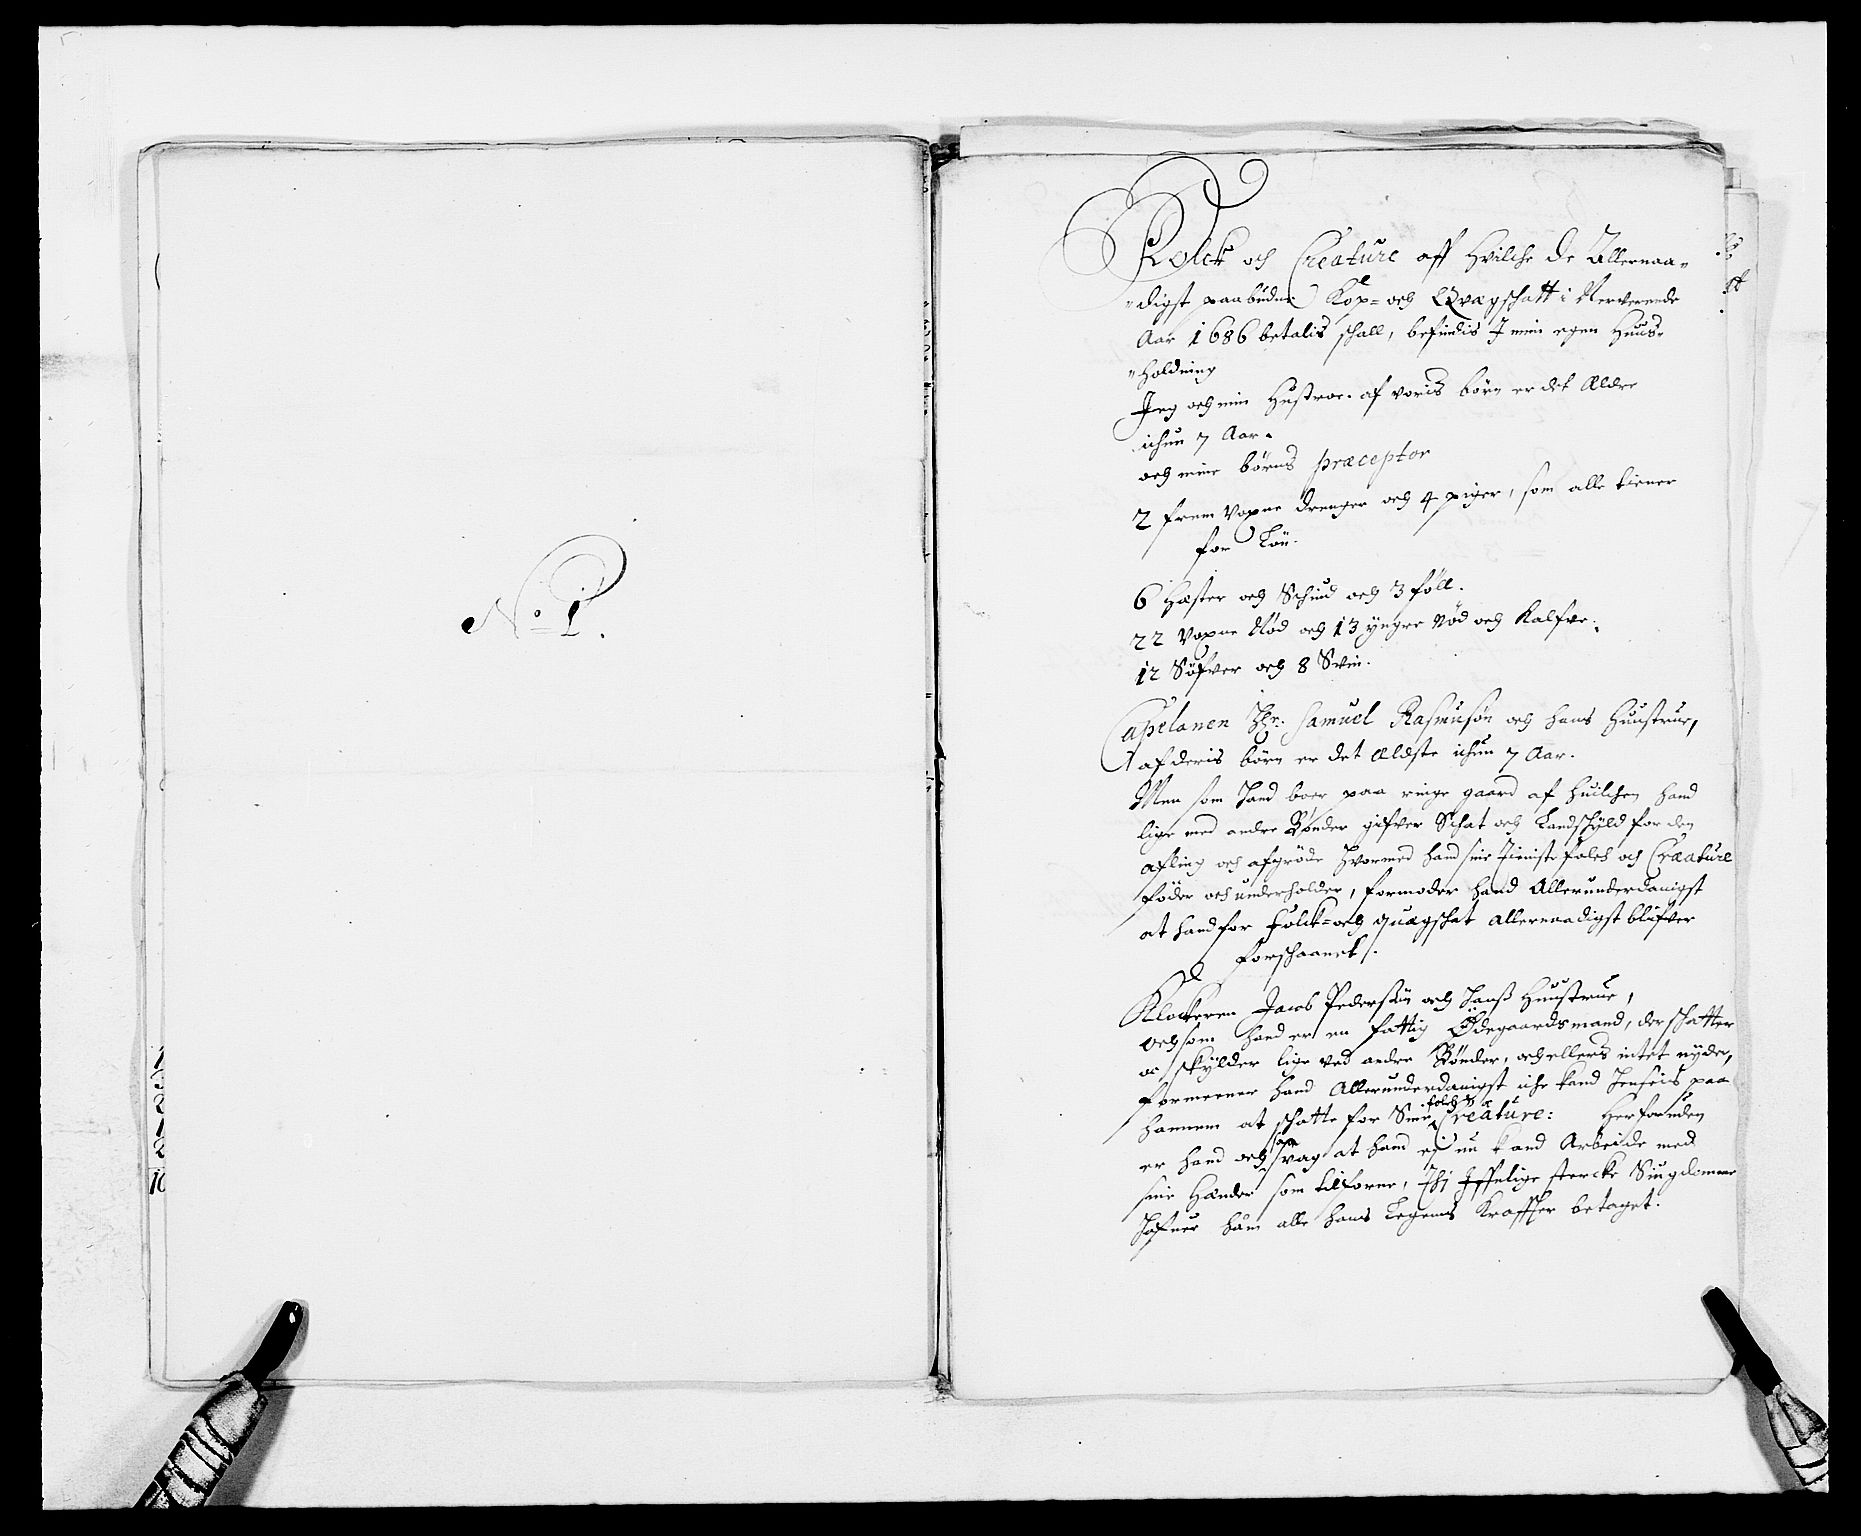 No 1.
Folck och Creature aff Hvilche de Allernaa-
digst paabudne Kop- och Qvægschatt i Nerverende
Aar 1686 betalis schall, befindis J min egen Huus-
holdning
Jeg och min Hustroe. af voris børn er det Ældre
ichun 7 Aar.
och mine børns præceptor
2 frem voxne drenger och 4 piger, som alle tiener
for Løn.
6 Hæster och Schiud och 3 føll.
22 voxne Nød och 13 yngre Nød och Kalfve.
12 Søfver och 8 Svin.
Capelanen Hr: Samuel Rasmusøn och hans Huustrue,
af deris børn er det Ældste ichun 7 Aar.
Men som hand boer paa ringe gaard af huilchen hand
lige med andre Bønder gifver Schat och Landschyld for den
afling och afgrøde hvormed hand sine tieniste folch och Creature
føder och underholder, formoder hand Allerunderdanigst
at hand for Folck- och quægschat allernaadigst blifver
forschaanet.
Klockeren Jacob Pedersøn och hanß Huustrue,
och som hand er en fattig Ødegaardsmand, der schatter
oc skylder lige ved andre Bønder, och ellers intet nyder,
formeener hand Allerunderdanigst iche kand henseis paa
hannem at schatte for Sine folch & Creature: Herforuden
er hand och saa svag at hand ej nu kand Arbeide med
sine Hænder som tilforne, Thj Jffelige stercke Siugdomme
hafuer ham alle hans Legems Kraffter betaget.